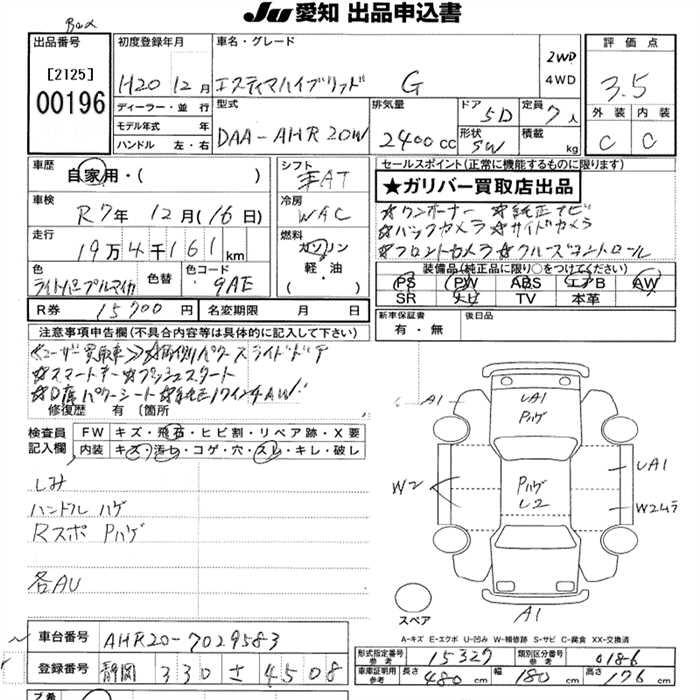 JU 愛知 出品申込書
出品番号
[2125]
00196
初度登録年月
H20 年 12月
ディーラー・並 行
モデル年式 年
ハンドル 左・右
車名・グレード
エスティマハイブリッド G
2WD
4WD
型式
DAA-AHR20W
排気量
2400 cc
ドア
5D
形状
SW
定員
7人
積載
kg
評価点
3.5
外装 内装
C C
車歴
自家用・( )
車検
R7年 12月(16日)
走行
19万4千161km
色
ライトパープルマイカ
色替
色コード
9AE
R券
15700円
名変期限 月 日
シフト
AT
冷房
WAC
燃料
ガソリン
軽・油
( )
セールスポイント(正常に機能するものに限ります)
★ガリバー買取店出品
☆ワンオーナー ☆純正ナビ
☆バックカメラ ☆サイドカメラ
☆フロントカメラ ☆クルーズコントロール
装備品(純正品に限り○をつけてください)
PS PW ABS エアB AW
SR ナビ TV 本革
新車保証書
有・無
後日品
注意事項申告欄(不具合内容等は具体的に記入して下さい)
《ユーザー買取車》☆両側パワースライドドア
☆スマートキー ☆プッシュスタート
パワーシート ☆純正17インチAW
修復歴 有 〔箇所
検査員
記入欄
FW キズ・飛石・ヒビ割・リペア跡・X要
内装 キズ・汚レ・コゲ・穴・スレ・キレ・破レ
しみ
ハンドル ハゲ
Rスポ Pハゲ
各AU
A1
UA1
Pハゲ
W2
Pハゲ
UA1
A1
スペア
A-キズ E-エクボ U-凹み W-補修跡 S-サビ C-腐食 XX-交換済
車台番号
AHR20-7029583
登録番号
静岡 330 さ 4508
形式指定番号
参考
15327
類別区分番号
参考
018-6
車庫証明用
参考
長さ 480 cm 幅 180 cm 高さ 176 cm